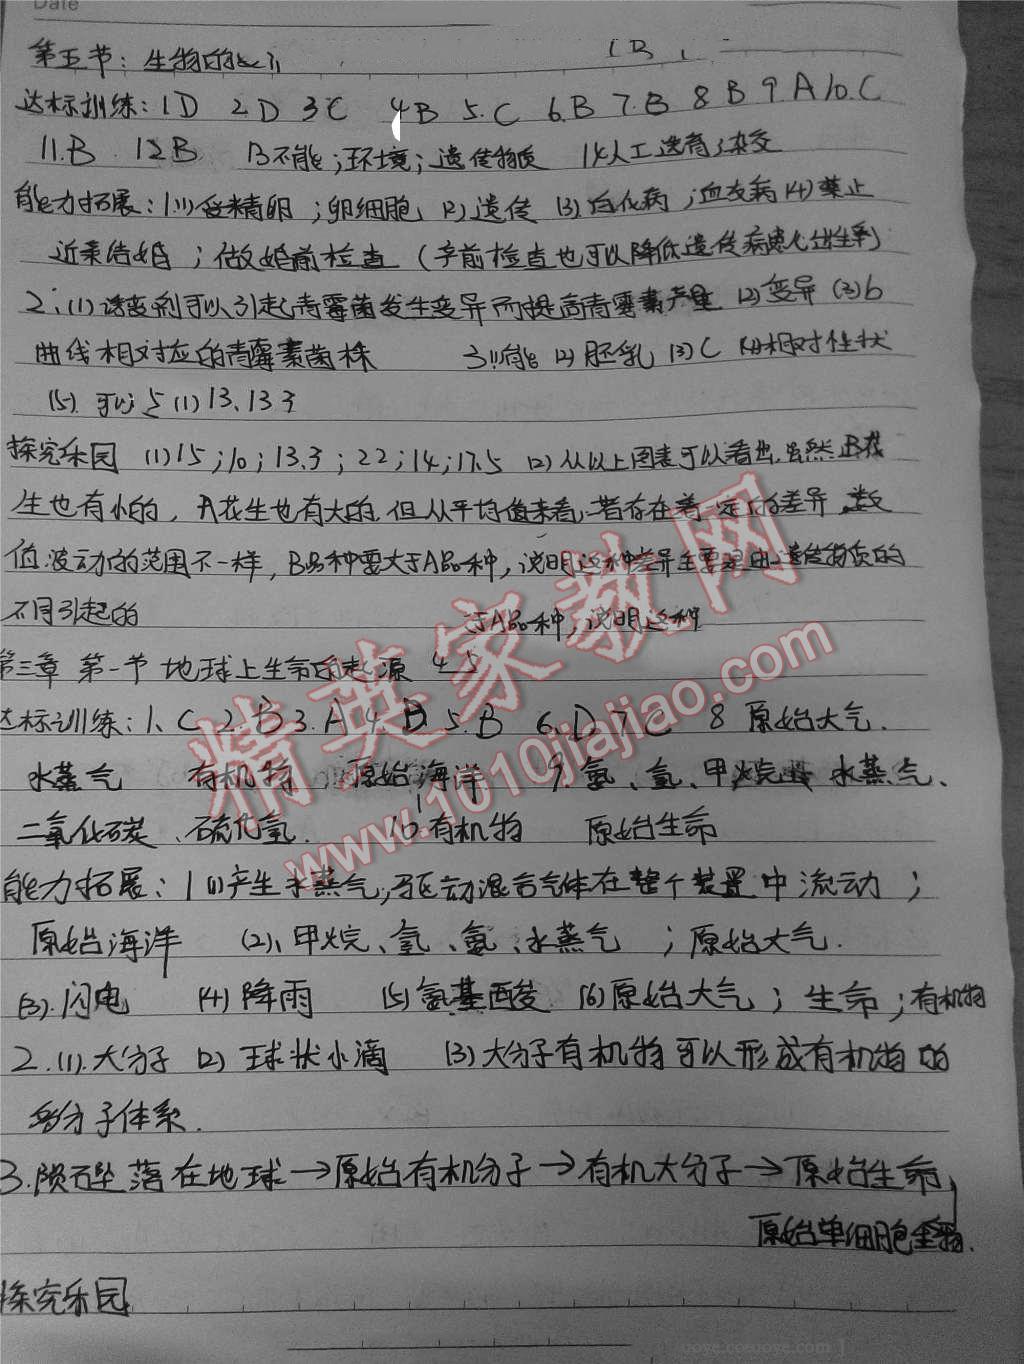 Date
第五节:生物的
达标训练:1D 2D 3C 4B 5.C 6.B 7.B 8B 9.A 10.C
11.B 12B 13不能;环境;遗传物质 14人工选育;杂交
能力拓展:1.(1)受精卵;卵细胞 (2)遗传 (3)白化病;血友病 (4)禁止
近亲结婚;做婚前检查(孕前检查也可以降低遗传病患儿出生率)
2.(1)诱变剂可以引起青霉菌发生变异而提高青霉素产量 (2)变异 (3)b
曲线相对应的青霉素菌株 3(1)能 (2)胚乳 (3)C (4)相对性状
(5).可以 (1)13.133
探究乐园 (1)15;10;13.3;22;14;17.5 (2)从以上图表可以看出,虽然B花
生也有小的,A花生也有大的.但从平均值来看,二者存在着一定的差异,数
值波动的范围不一样,B品种要大于A品种,说明这种差异主要是由遗传物质的
不同引起的 于A品种,说明这种
第三章 第一节 地球上生命的起源 45
达标训练:1、C 2.B 3.A 4.D 5.B 6.D 7.C 8 原始大气.
水蒸气 有机物 原始海洋 9.氨、氢、甲烷 水蒸气、
二氧化碳、硫化氢. 10.有机物 原始生命
能力拓展:1(1)产生水蒸气,驱动混合气体在整个装置中流动;
原始海洋 (2)、甲烷、氢、氨、水蒸气;原始大气.
(3).闪电 (4)降雨 (5)氨基酸 (6)原始大气;生命;有机物
2.(1).大分子 (2)球状小滴 (3)大分子有机物可以形成有机物的
多分子体系.
3.陨石坠落在地球→原始有机分子→有机大分子→原始生命
原始单细胞生物.
探究乐园
精英家教网
www.1010jiajiao.com